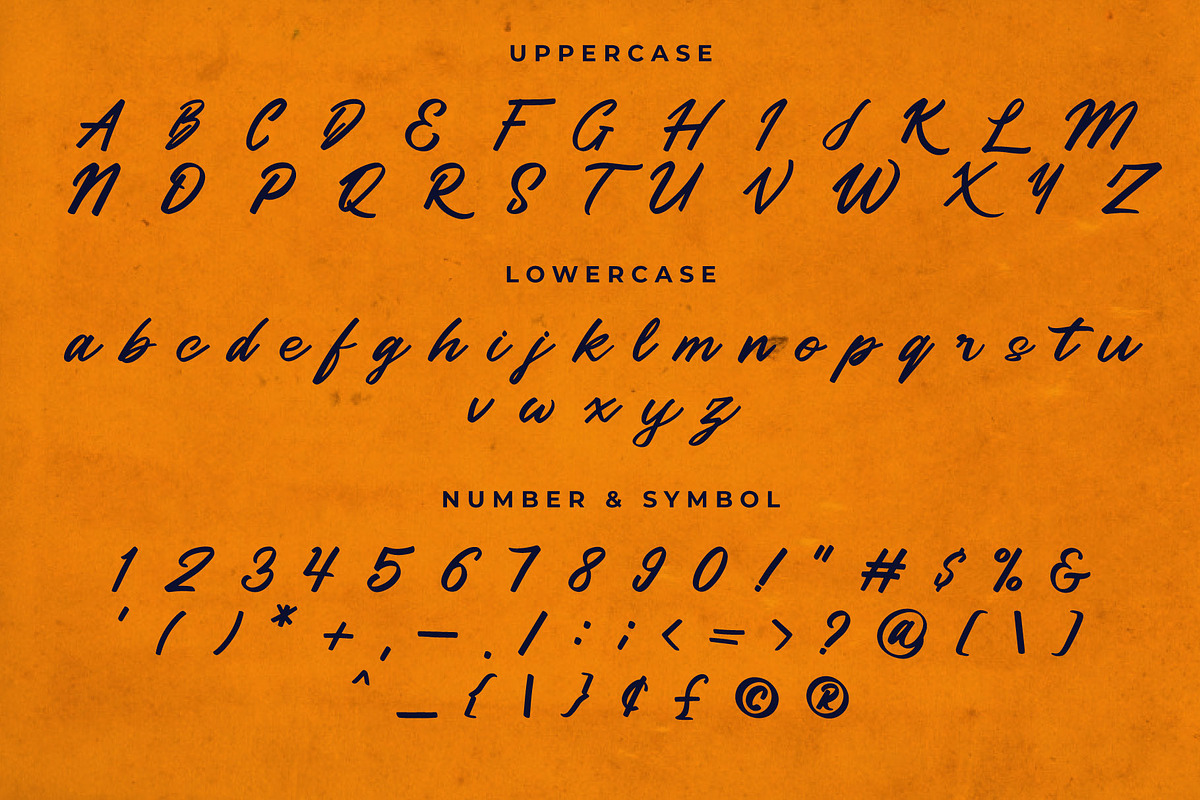 UPPERCASE
A B C D E F G H I J K L M
N O P Q R S T U V W X Y Z
LOWERCASE
a b c d e f g h i j k l m n o p q r s t u
v w x y z
NUMBER & SYMBOL
1 2 3 4 5 6 7 8 9 0 ! " # $ % &
' ( ) * + , — . / : ; < = > ? @ [ \ ]
^ _ { | } ¢ £ © ®